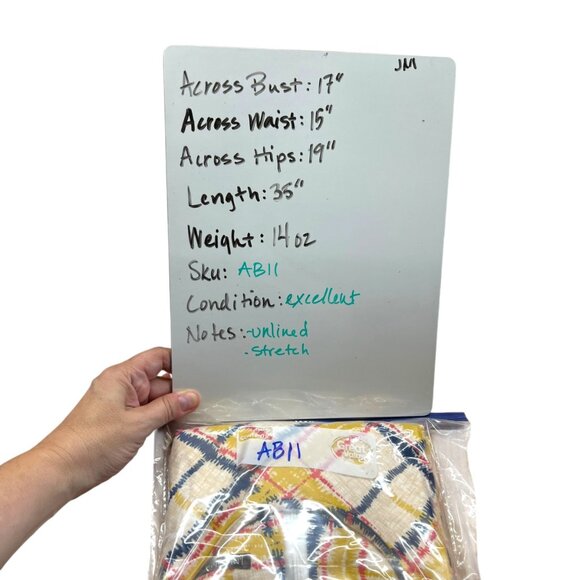 JM
Across Bust: 17"
Across Waist: 15"
Across Hips: 19"
Length: 35"
Weight: 14oz
Sku: AB11
Condition: excellent
Notes: -unlined
-stretch
AB11
Great Value